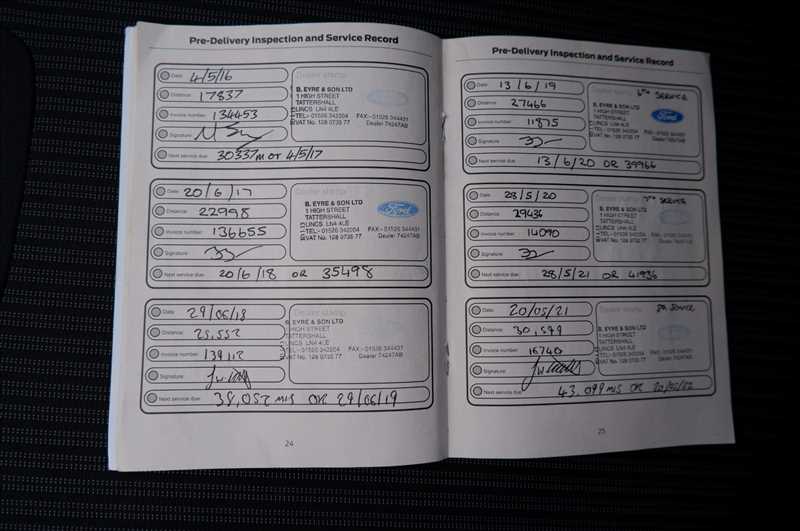 Pre-Delivery Inspection and Service Record
Date 4/5/16
Distance 17837
Invoice number 134453
Signature
Next service due 30337m or 4/5/17
Dealer stamp
B. EYRE & SON LTD
1 HIGH STREET
TATTERSHALL
LINCS LN4 4LE
TEL:- 01526 342004 FAX:- 01526 344431
VAT No. 128 0735 77 Dealer 74247AB
Date 20/6/17
Distance 22998
Invoice number 136655
Signature
Next service due 20/6/18 OR 35498
Dealer stamp
B. EYRE & SON LTD
1 HIGH STREET
TATTERSHALL
LINCS LN4 4LE
TEL:- 01526 342004 FAX:- 01526 344431
VAT No. 128 0735 77 Dealer 74247AB
Ford
Date 29/06/18
Distance 25,552
Invoice number 139112
Signature
Next service due 38,052 mls OR 29/06/19
Dealer stamp
B. EYRE & SON LTD
1 HIGH STREET
TATTERSHALL
LINCS LN4 4LE
TEL:- 01526 342004 FAX:- 01526 344431
VAT No. 128 0735 77 Dealer 74247AB
24
Pre-Delivery Inspection and Service Record
Date 13/6/19
Distance 27466
Invoice number 11875
Signature
Next service due 13/6/20 OR 39966
Dealer stamp 6TH SERVICE
B. EYRE & SON LTD
1 HIGH STREET
TATTERSHALL
LINCS LN4 4LE
TEL:- 01526 342004 FAX:- 01526 344431
VAT No. 128 0735 77 Dealer 74247AB
Ford
Date 28/5/20
Distance 29436
Invoice number 14090
Signature
Next service due 28/5/21 OR 41936
Dealer stamp 7TH SERVICE
B. EYRE & SON LTD
1 HIGH STREET
TATTERSHALL
LINCS LN4 4LE
TEL:- 01526 342004 FAX:- 01526 344431
VAT No. 128 0735 77 Dealer 74247AB
Date 20/05/21
Distance 30,599
Invoice number 16740
Signature
Next service due 43,099 mls OR 20/05/22
Service
B. EYRE & SON LTD
1 HIGH STREET
TATTERSHALL
LINCS LN4 4LE
TEL:- 01526 342004 FAX:- 01526 344431
VAT No. 128 0735 77 Dealer 74247AB
25